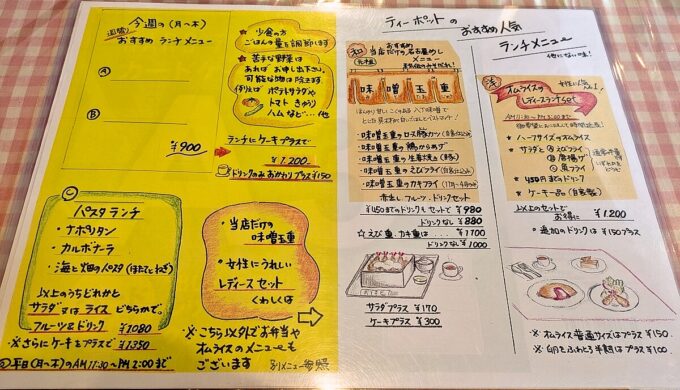 今週の(月〜木)
おすすめ ランチメニュー
Ⓐ
Ⓑ
¥900
☆ 少食の方
ごはんの量を調節します
☆ 苦手な野菜は
あれば お申し出下さい。
可能な物は除きます
例えば ポテトサラダや
トマト きゅうり
ハムなど…他
ランチにケーキプラスで
¥1,200
ドリンクのみ おかわり プラス¥150
Ⓒ
パスタ ランチ
・ナポリタン
・カルボナーラ
・海と畑のパスタ(ほたてとねぎ)
以上のうちどれかと
サラダ 又は ライス どちらかで。
フルーツ&ドリンク ¥1080
※さらに ケーキをプラスで ¥1350
平日(月〜木)のAM11:30〜PM2:00まで
・当店だけの
味噌玉重
・女性にうれしい
レディースセット
くわしくは
※こちら以外でお弁当や
オムライスのメニューも
ございます
別メニュー参照
ティーポットの
おすすめ人気
ランチメニュー
他にない味!
和
おすすめ
当店だけの名古屋めし
メニュー
味噌玉重
・味噌玉重のロース豚カツ
・味噌玉重の鶏から揚げ
・味噌玉重の生姜焼き(豚)
・味噌玉重のエビフライ
・味噌玉重のカキフライ
赤出し フルーツ、ドリンクセット
¥450までのドリンクもセットで ¥980
ドリンクなし ¥880
☆ えび重、カキ重は… ¥1100
ドリンクなし ¥1000
サラダプラス ¥170
ケーキプラス ¥300
洋
女性に人気!
オムライスの
レディースランチset
・ハーフサイズのオムライス
・サラダと Ⓐエビフライ
Ⓑ唐揚げ
Ⓒ魚フライ
・450円までのドリンク
・ケーキ一品(自家製)
以上のセットで
お得に ¥1200
・追加のドリンクは ¥150プラス
※オムライス普通サイズはプラス¥150